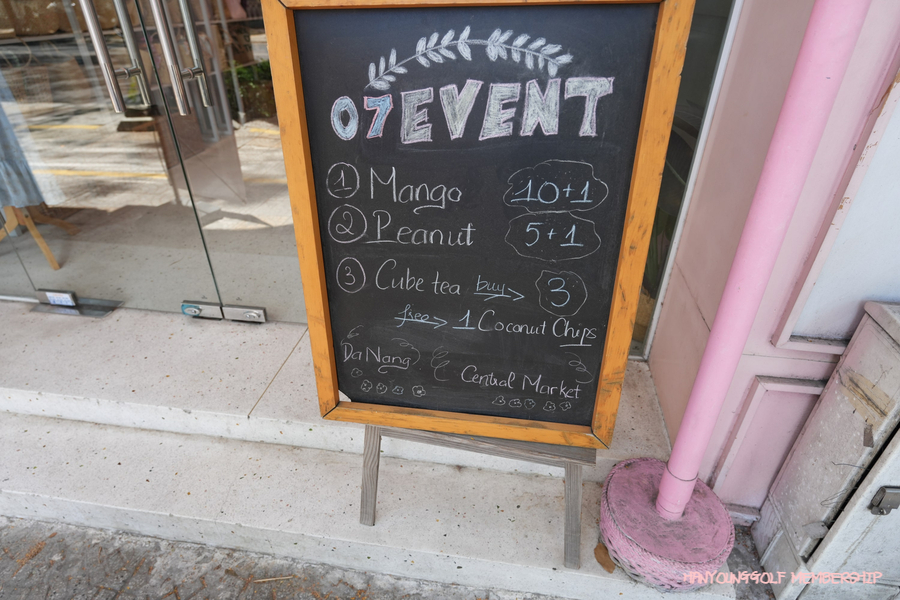 07 EVENT
1 Mango 10+1
2 Peanut 5+1
3 Cube tea buy → 3
free → 1 Coconut Chips
Da Nang
Central Market
HANYOUNGGOLF MEMBERSHIP